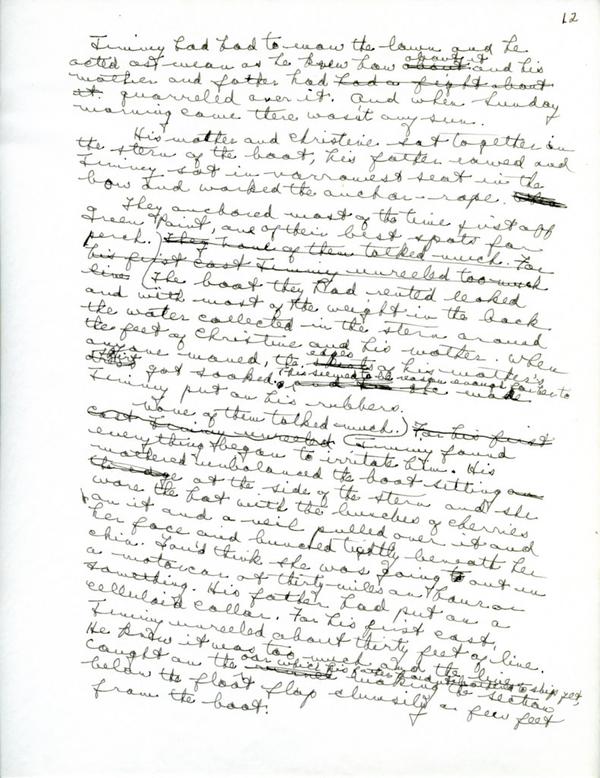 12
Timmy had had to mow the lawn and he
acted as mean as he knew how about about it and his
mother and father had had a fight about
it quarreled over it. And when Sunday
morning came there wasn't any sun.
His mother and Christine sat together in
the stern of the boat, his father rowed and
Timmy sat in narrowest seat in the
bow and worked the anchor-rope.
They anchored most of the time just off
Green Point, one of their best spots for
perch. They none of them talked much. For
his first cast Timmy unreeled too much
line (The boat they had rented leaked
and with most of the weight in the back
the water collected in the stern around
the feet of Christine and his mother. When
anyone moved, the edges of his mother's
skirt got soaked. This seemed to be reason enough for her to
Timmy put on his rubbers.
None of them talked much.) For his first
cast Timmy unreeled (Timmy found
everything began to irritate him. His
mother unbalanced the boat sitting on
the edge at the side of the stern and she
wore the hat with the bunches of cherries
on it and a veil pulled over it and
her face and bunched tightly beneath her
chin. You'd think she was going to out in
a motorcar at thirty miles an hour or
something. His father had put on a
celluloid collar. For his first cast,
Timmy unreeled about thirty feet of line.
He knew it was too much and the line
caught on the oar which his father to ship yet,
making the section
below the float flop clumsily a few feet
from the boat.